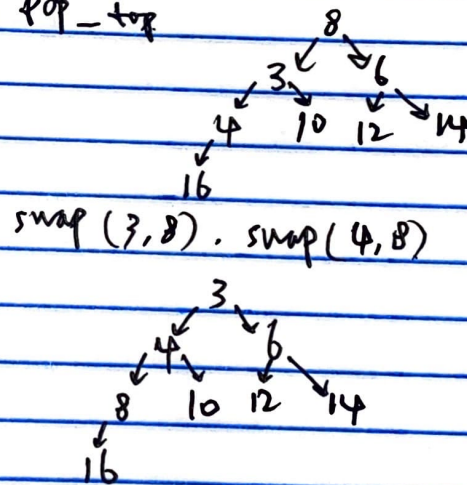 pop_top
8
3 6
4 10 12 14
16
swap (3,8). swap (4,8)
3
4 6
8 10 12 14
16